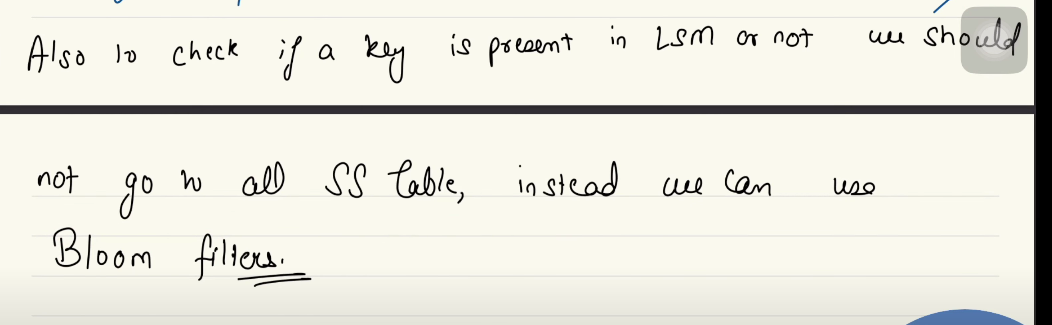 Also to check if a key is present in LSM or not we should
not go to all SS Table, instead we can use
Bloom filters.